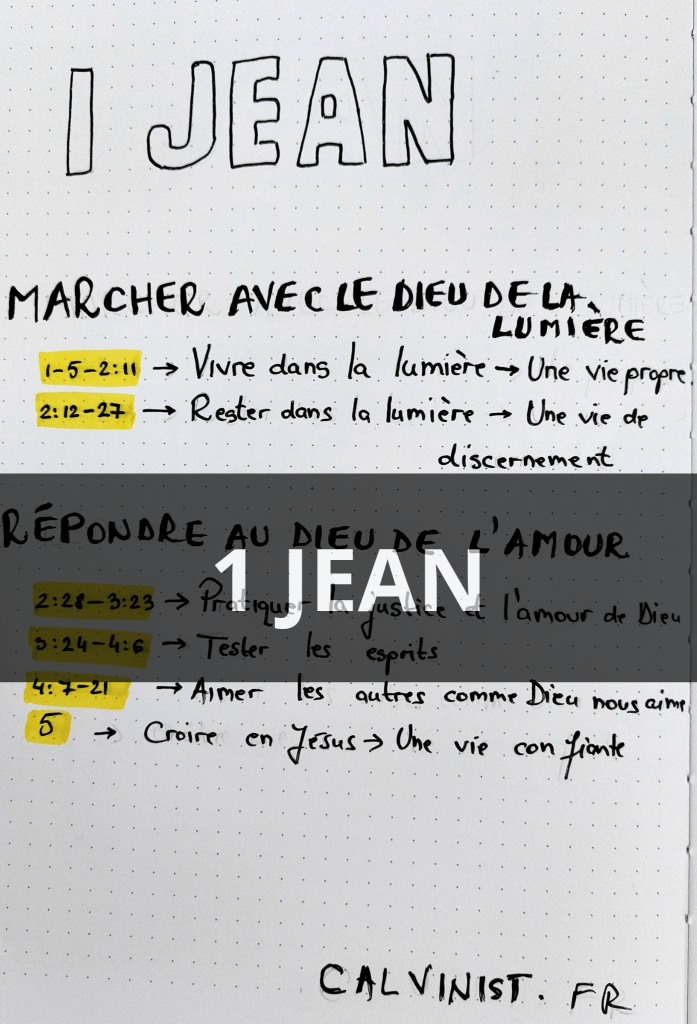 1 JEAN
MARCHER AVEC LE DIEU DE LA
LUMIÈRE
1-5-2:11 → Vivre dans la lumière → Une vie propre
2:12-27 → Rester dans la lumière → Une vie de
discernement
RÉPONDRE AU DIEU DE L'AMOUR
1 JEAN
2:28-3:23 → Pratiquer la justice et l'amour de Dieu
3:24-4:6 → Tester les esprits
4:7-21 → Aimer les autres comme Dieu nous aime
5 → Croire en Jésus → Une vie confiante
CALVINIST.FR